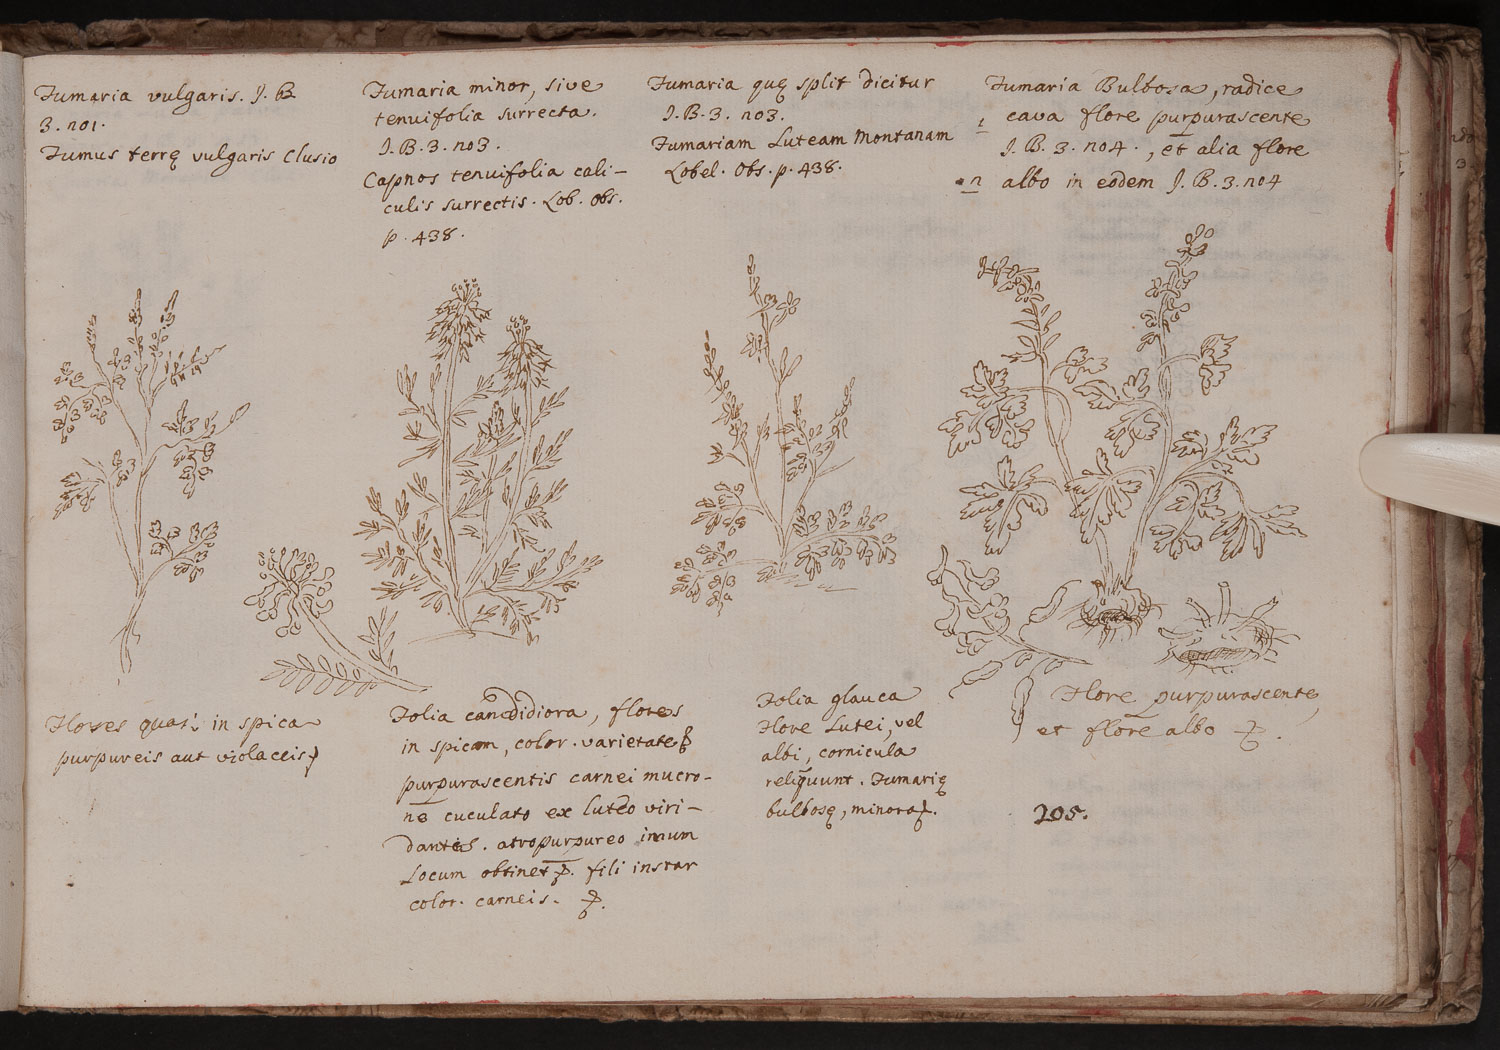 Fumaria vulgaris. J. B
3. no1.
Fumus terrę vulgaris Clusio
Fumaria minor, sive
tenuifolia surrecta.
J. B. 3. no3.
Capnos tenuifolia cali-
culis surrectis. Lob. obs.
p. 438.
Fumaria quę split dicitur
J. B. 3. no3.
Fumariam Luteam Montanam
Lobel. Obs. p. 438.
Fumaria Bulbosa, radice
1 cava flore purpurascente
J. B. 3. no4., et alia flore
n albo in eodem J. B. 3. no4
Flores quasi in spica
purpureis aut violaceis
Folia candidiora, flores
in spicam, color. varietate
purpurascentis carnei mucro-
ne cuculato ex luteo viri-
dantis. atropurpureo imum
Locum obtinet. fili instar
color. carneis.
Folia glauca
Flore Lutei, vel
albi, cornicula
reliquunt. Fumarię
bulbosę, minora.
Flore purpurascente,
et flore albo
205.